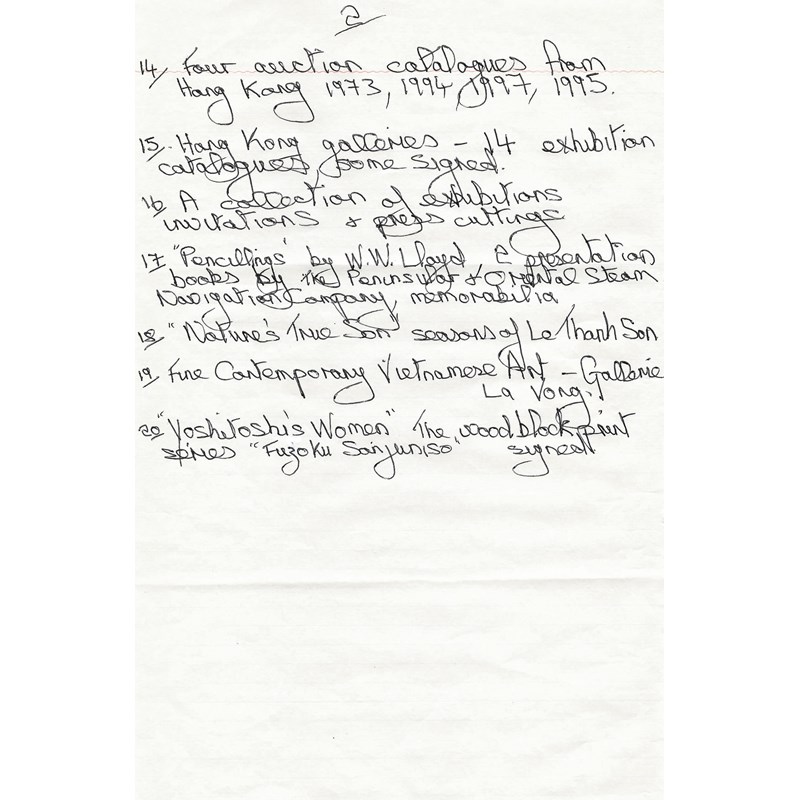 2
14, Four auction catalogues from
Hong Kong 1973, 1994, 1997, 1995.
15, Hong Kong galleries - 14 exhibition
catalogues, some signed.
16, A collection of exhibitions
invitations & press cuttings
17, "Pencillings" by W.W. Lloyd 2 presentation
books by the Peninsular & Oriental Steam
Navigation Company, memorabilia
18, "Nature's True Son" seasons of Le Thanh Son
19, Fine Contemporary Vietnamese Art - Gallerie
La Vong.
20, "Yoshitoshi's Women" The woodblock print
series "Fuzoku Sanjuniso" signed